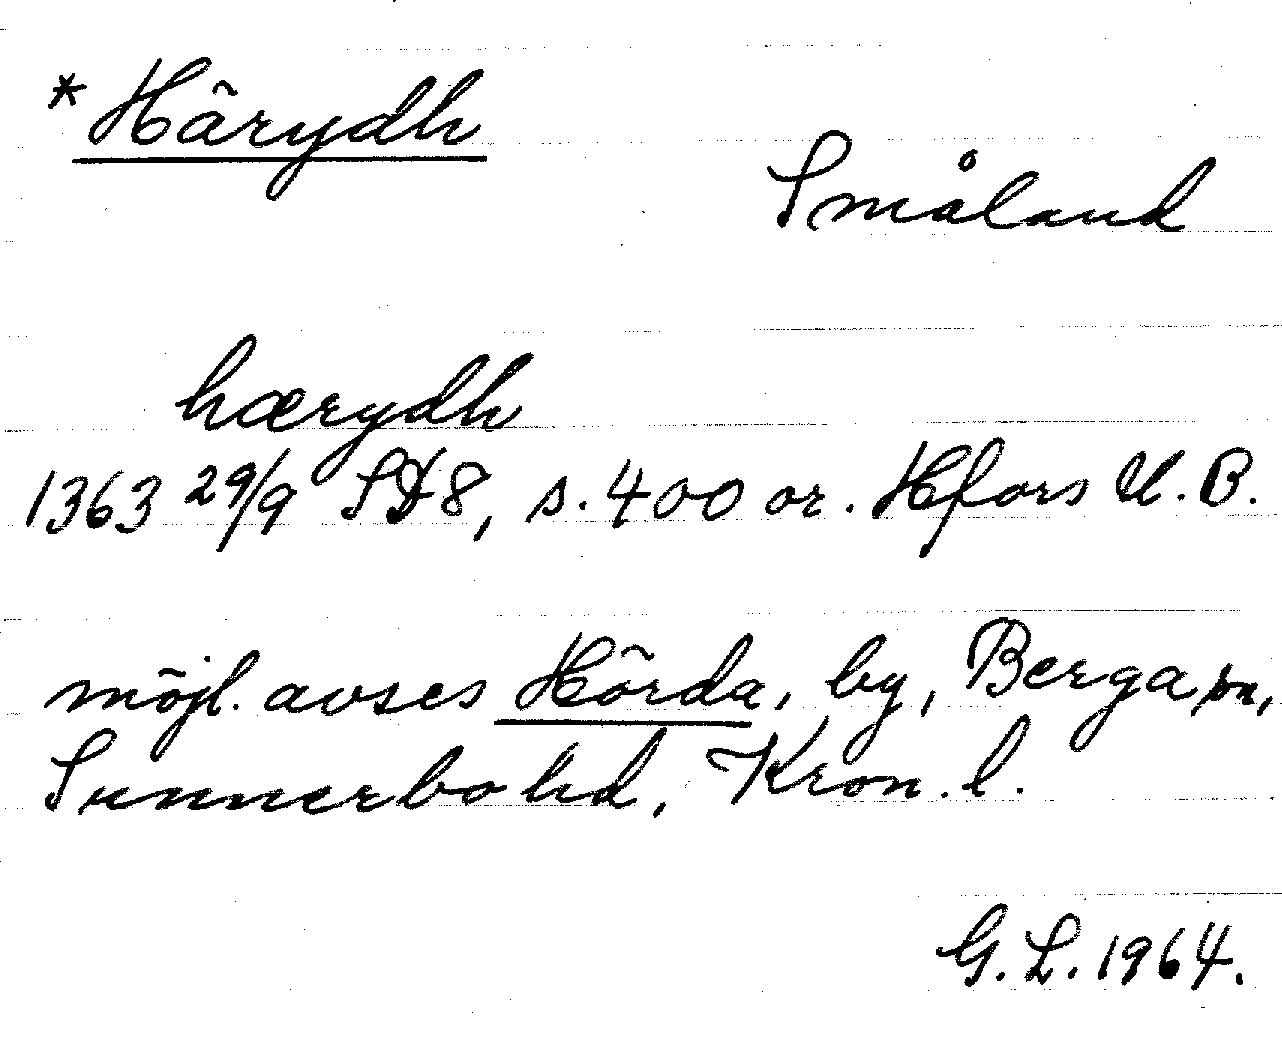 *Härydh
Småland
hærydh
1363 29/9 SD8, s. 400 or. Hfors U.B.
möjl. avses Hörda, by, Berga sn,
Sunnerbo hd, Kron. l.
G. L. 1964.